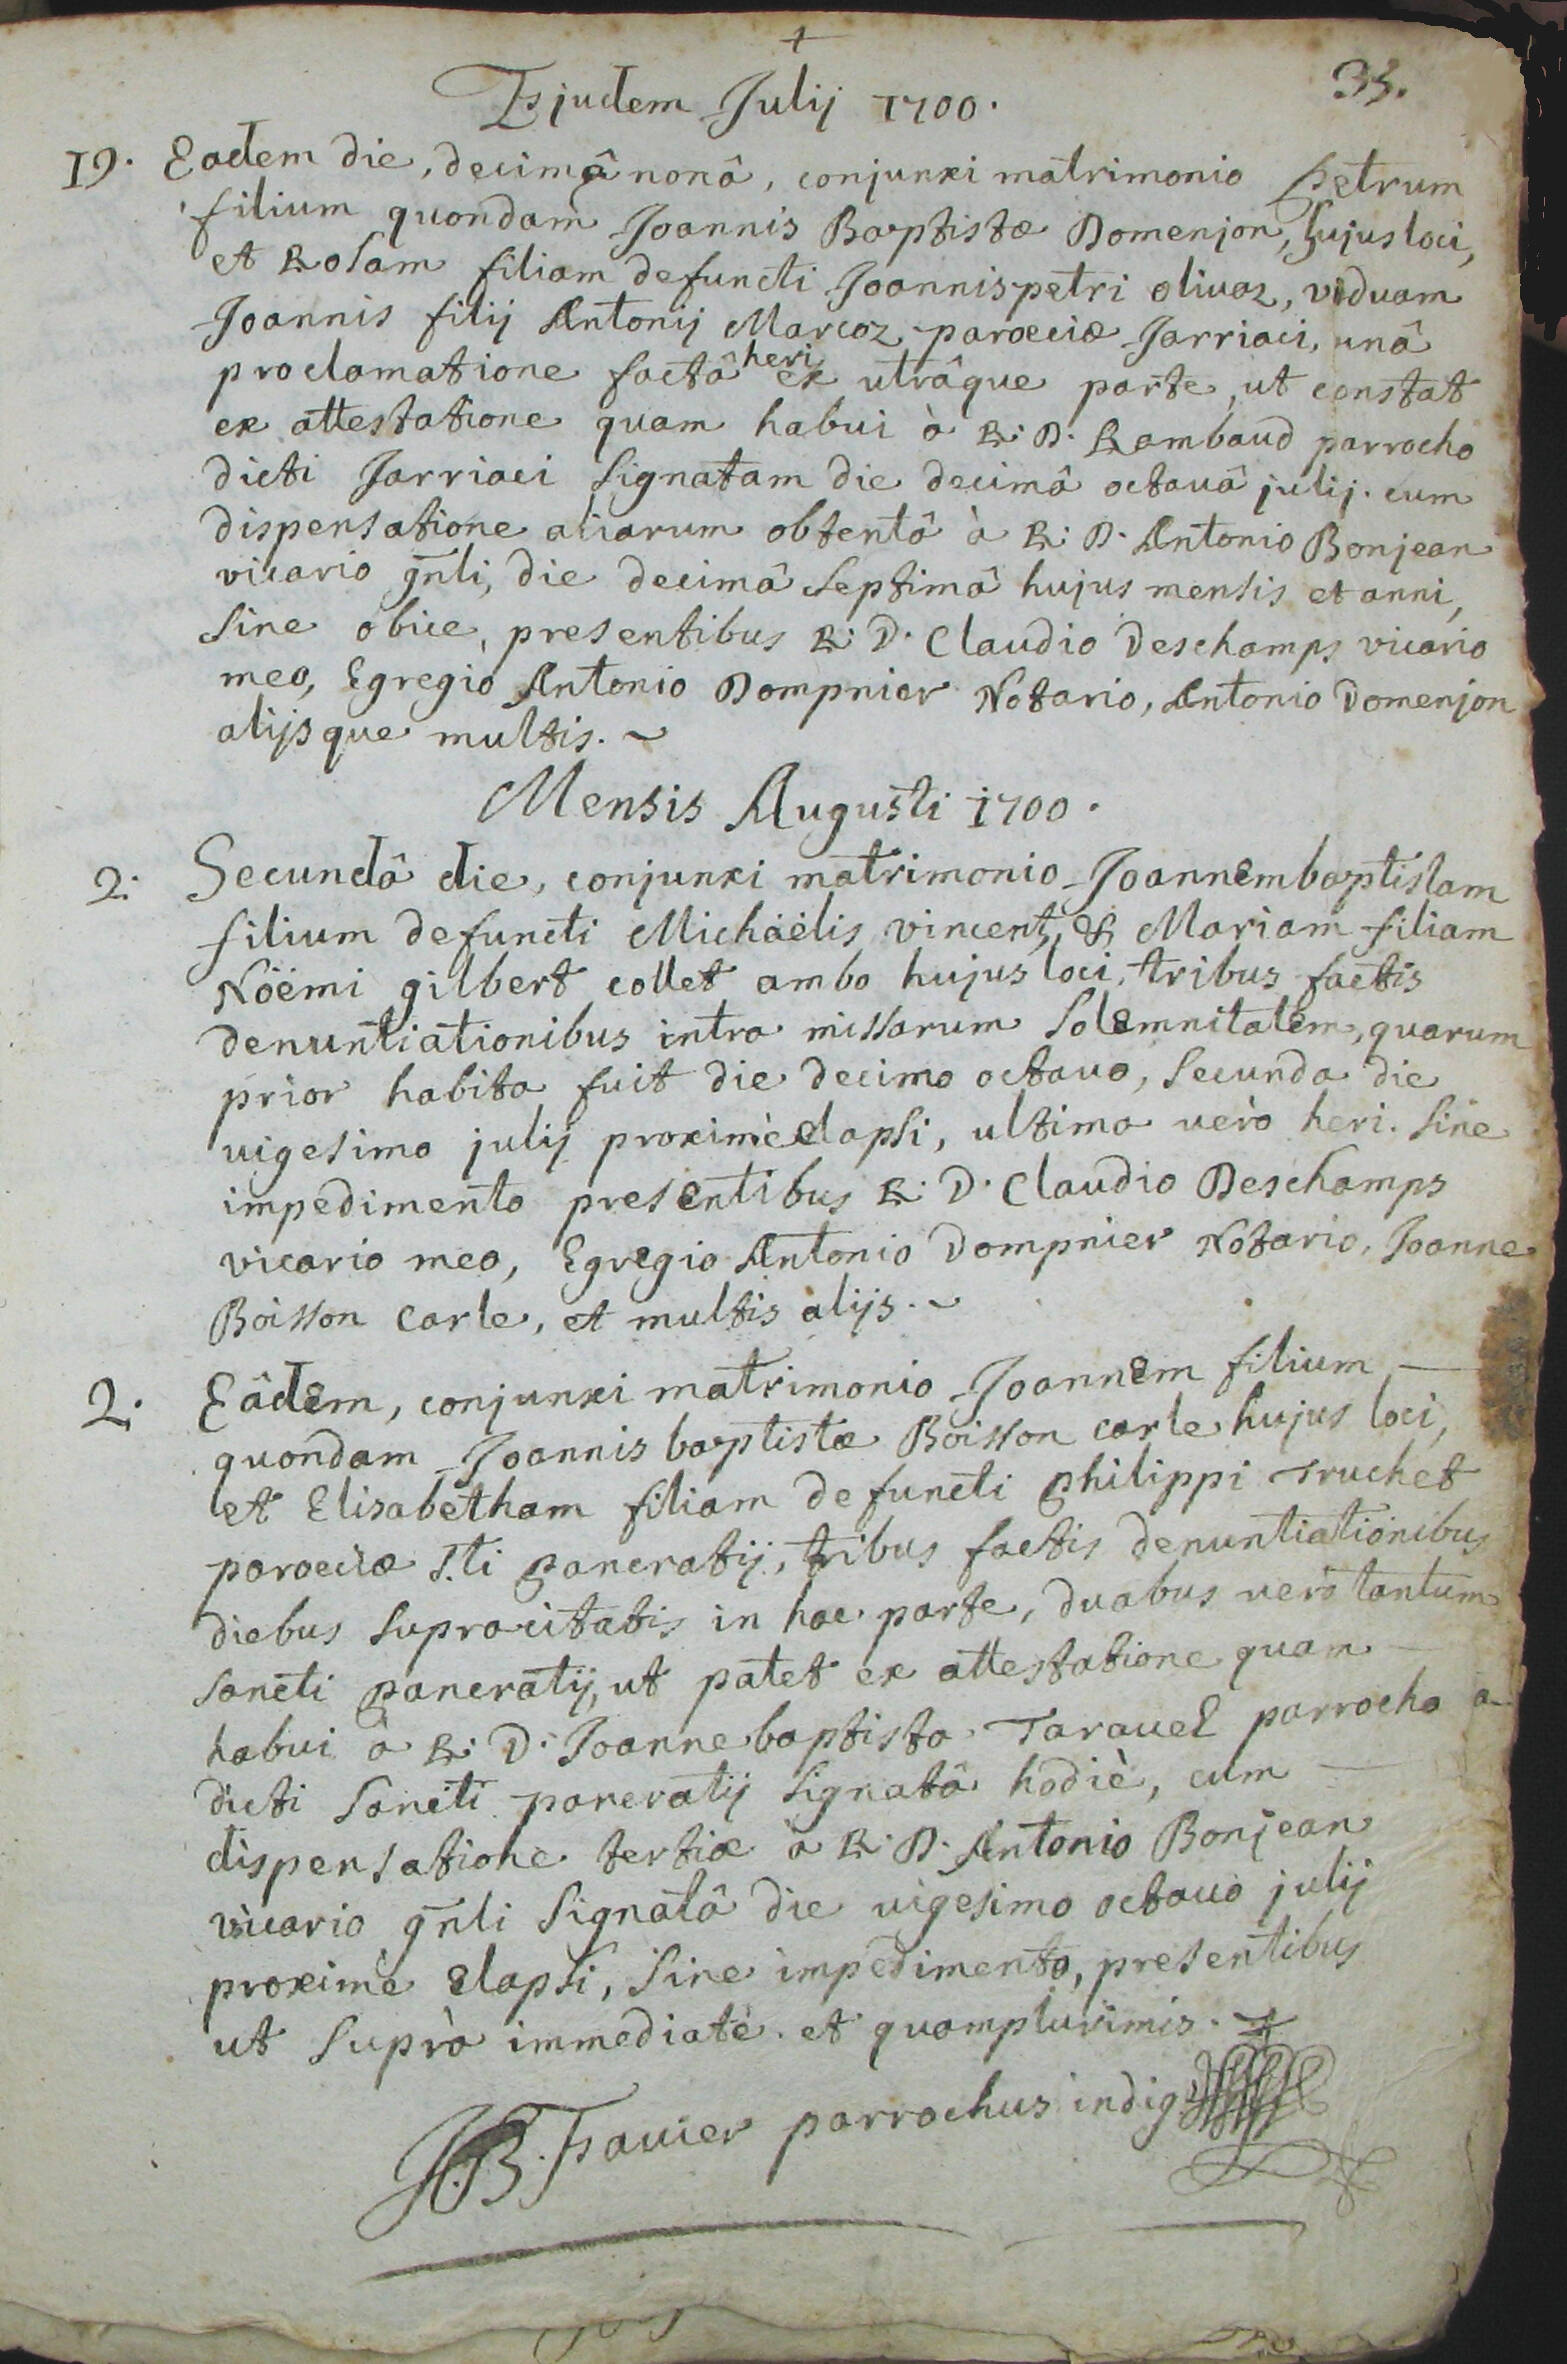 +
Ejudem Julij 1700.
33.
19. Eadem die, decimâ nonâ, conjunxi matrimonio Petrum
filium quondam Joannis Baptistæ Domenjon, hujus loci,
et Rosam filiam defuncti Joannispetri olivaz, viduam
Joannis filij Antonij Marcoz parœciæ Jarriaci, unâ
proclamatione factâ heri ex utrâque parte, ut constat
ex attestatione quam habui à R: D. Rambaud parrocho
dicti Jarriaci signatam die decimâ octauâ julij. cum
dispensatione aliarum obtentâ à R: D. Antonio Bonjean
vicario gn̄li, die decimâ septimâ hujus mensis et anni,
sine obice, presentibus R: D. Claudio Deschamps vicario
meo, Egregio Antonio Dompnier Notario, Antonio Domenjon
alijsque multis. ~
Mensis Augusti 1700.
2. Secundâ die, conjunxi matrimonio Joannembaptistam
filium defuncti Michaëlis vincent, & Mariam filiam
Nöemi gilbert collet ambo hujus loci, tribus factis
denuntiationibus intra missarum solemnitatem, quarum
prior habita fuit die decimo octauo, secunda die
uigesimo julij proximè elapsi, ultima uerò heri. sine
impedimento presentibus R: D. Claudio Deschamps
vicario meo, Egregio Antonio Dompnier Notario, Joanne
Boisson carle, et multis alijs. ~
2. Eâdem, conjunxi matrimonio Joannem filium
quondam Joannis baptistæ Boisson carle hujus loci,
et Elisabetham filiam defuncti philippi Truchet
parœciæ S.ti pancratij, tribus factis denuntiationibus
diebus supracitatis in hac parte, duabus uerò tantum
sancti pancratij, ut patet ex attestatione quam
habui a R: D. Joanne baptista Tarauel parrocho a
dicti sancti pancratij signatâ hodiè, cum
dispensatione tertiæ a R: D. Antonio Bonjean
vicario gn̄li signatâ die uigesimo octauo julij
proximè elapsi, sine impedimento, presentibus
ut suprà immediatè. et quamplurimis.
JB. Favier parrochus indig